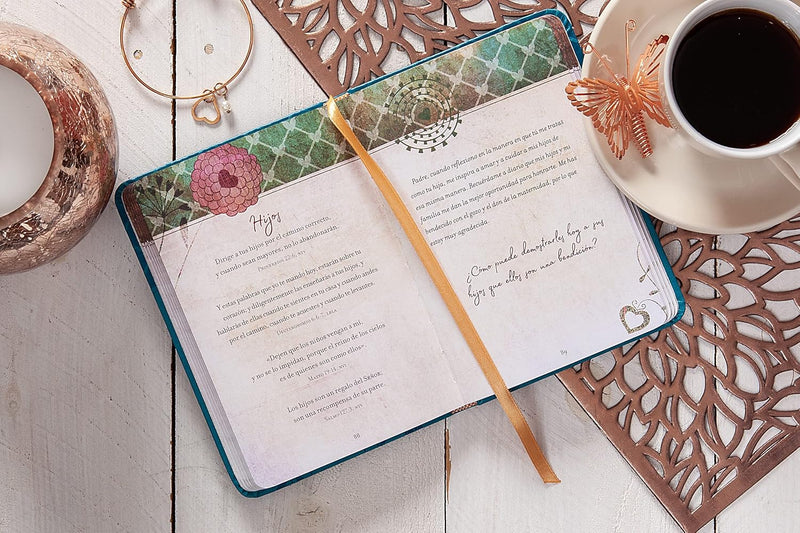 Hijos
Dirige a tus hijos por el camino correcto,
y cuando sean mayores, no lo abandonarán.
Proverbios 22:6, ntv
Y estas palabras que yo te mando hoy, estarán sobre tu
corazón; y diligentemente las enseñarás a tus hijos, y
hablarás de ellas cuando te sientes en tu casa y cuando andes
por el camino, cuando te acuestes y cuando te levantes.
Deuteronomio 6:6-7, lbla
«Dejen que los niños vengan a mí,
y no se lo impidan, porque el reino de los cielos
es de quienes son como ellos»
Mateo 19:14, nvi
Los hijos son un regalo del Señor;
son una recompensa de su parte.
Salmo 127:3, ntv
88
Padre, cuando reflexiono en la manera en que tú me tratas
como tu hija, me inspira a amar y a cuidar a mis hijos de
esa misma manera. Recuérdame a diario que mis hijos y mi
familia me dan la mejor oportunidad para honrarte. Me has
bendecido con el gozo y el don de la maternidad, por lo que
estoy muy agradecida.
¿Cómo puede demostrarles hoy a sus
hijos que ellos son una bendición?
89